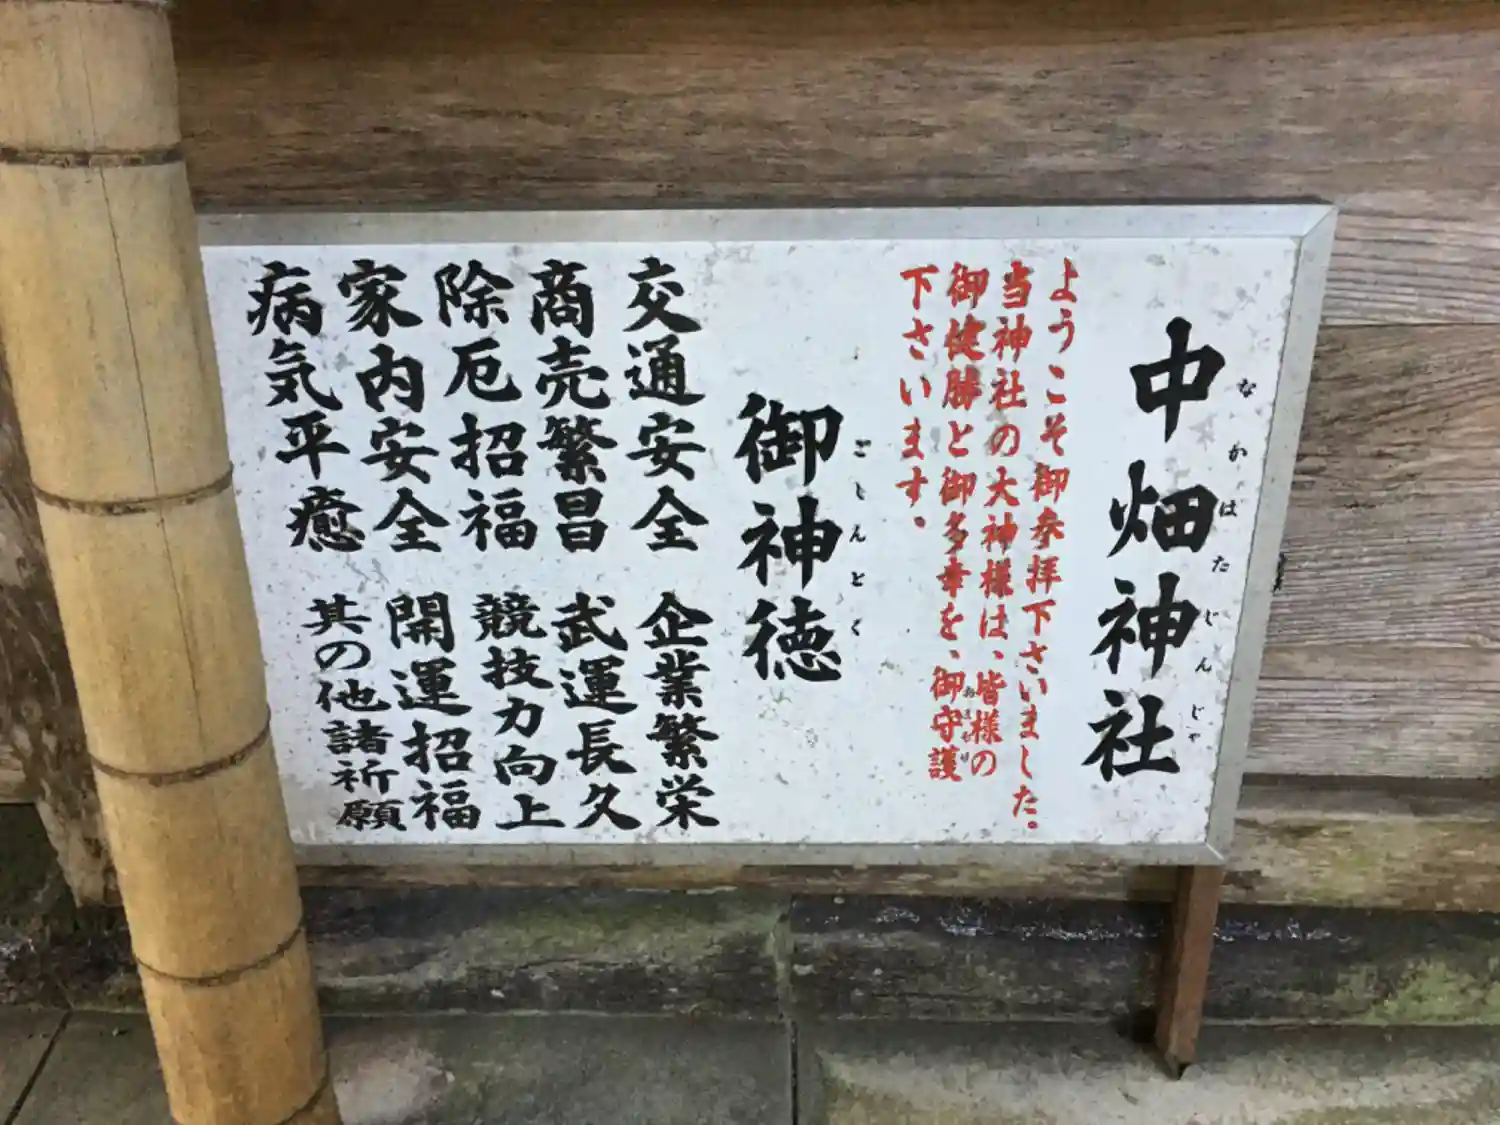 中畑神社
なかはたじんじゃ
ようこそ御参拝下さいました。
当神社の大神様は、皆様の
御健勝と御多幸を、御守護
おまもり
下さいます。
御神徳
ごしんとく
交通安全 企業繁栄
商売繁昌 武運長久
除厄招福 競技力向上
家内安全 開運招福
病気平癒 其の他諸祈願